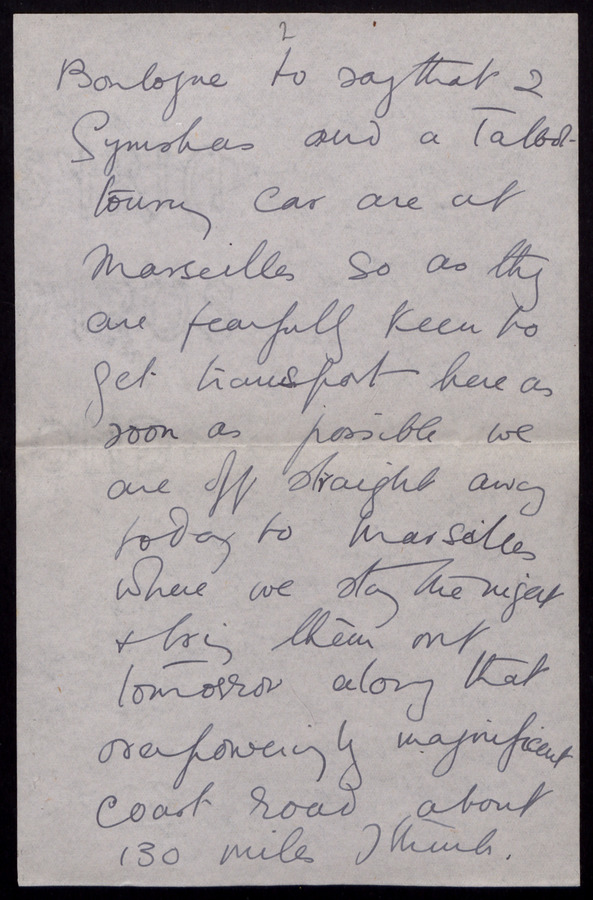 2
Boulogne to say that 2
and a Talbot-
touring car are at
Marseilles so as they
are fearfully keen to
get transport here as
soon as possible we
are off straight away
today to Marseilles
where we stay the night
& bring them out
tomorrow along that
overpoweringly magnificent
coast road about
130 miles I think.